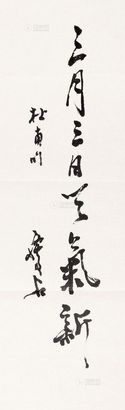 三月三日天氣新
杜甫句